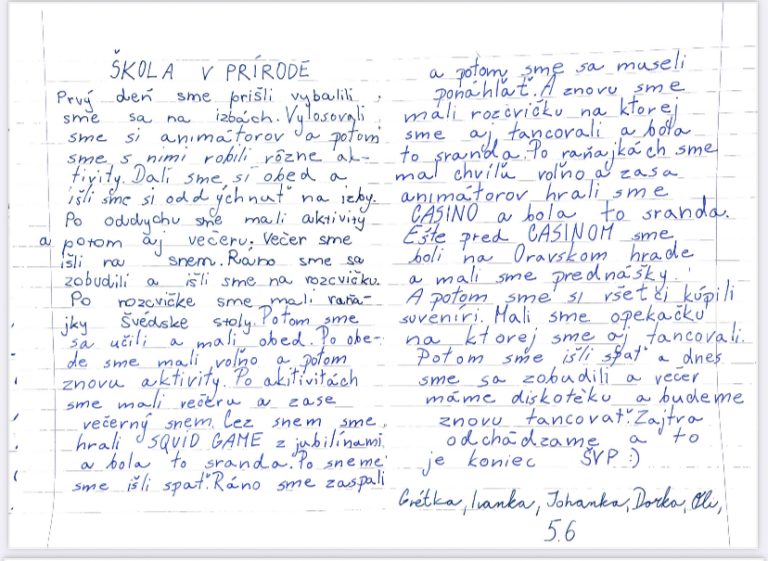 ŠKOLA V PRÍRODE
Prvý deň sme prišli vybalili
sme sa na izbách. Vylosovali
sme si animátorov a potom
sme s nimi robili rôzne ak-
tivity. Dali sme si obed a
išli sme si oddýchnuť na izby.
Po oddychu sme mali aktivity
a potom aj večeru. Večer sme
išli na snem. Ráno sme sa
zobudili a išli sme na rozcvičku.
Po rozcvičke sme mali raňa-
jky Švédske stoly. Potom sme
sa učili a mali obed. Po obe-
de sme mali voľno a potom
znovu aktivity. Po akitivitách
sme mali večeru a zase
večerný snem. Cez snem sme
hrali SQUID GAME z jubilínami
a bola to sranda. Po sneme
sme išli spať. Ráno sme zaspali
a potom sme sa museli
ponáhľať. A znovu sme
mali rozcvičku na ktorej
sme aj tancovali a bola
to sranda. Po raňajkách sme
mal chvíľu voľno a zasa
animátorov hrali sme
CASINO a bola to sranda.
Ešte pred CASINOM sme
boli na Oravskom hrade
a mali sme prednášky.
A potom sme si všetci kúpili
suveníri. Mali sme opekačku
na ktorej sme aj tancovali.
Potom sme išli spať a dnes
sme sa zobudili a večer
máme diskotéku a budeme
znovu tancovať. Zajtra
odchádzame a to
je koniec ŠVP :)
Grétka, Ivanka, Johanka, Dorka,
5.6